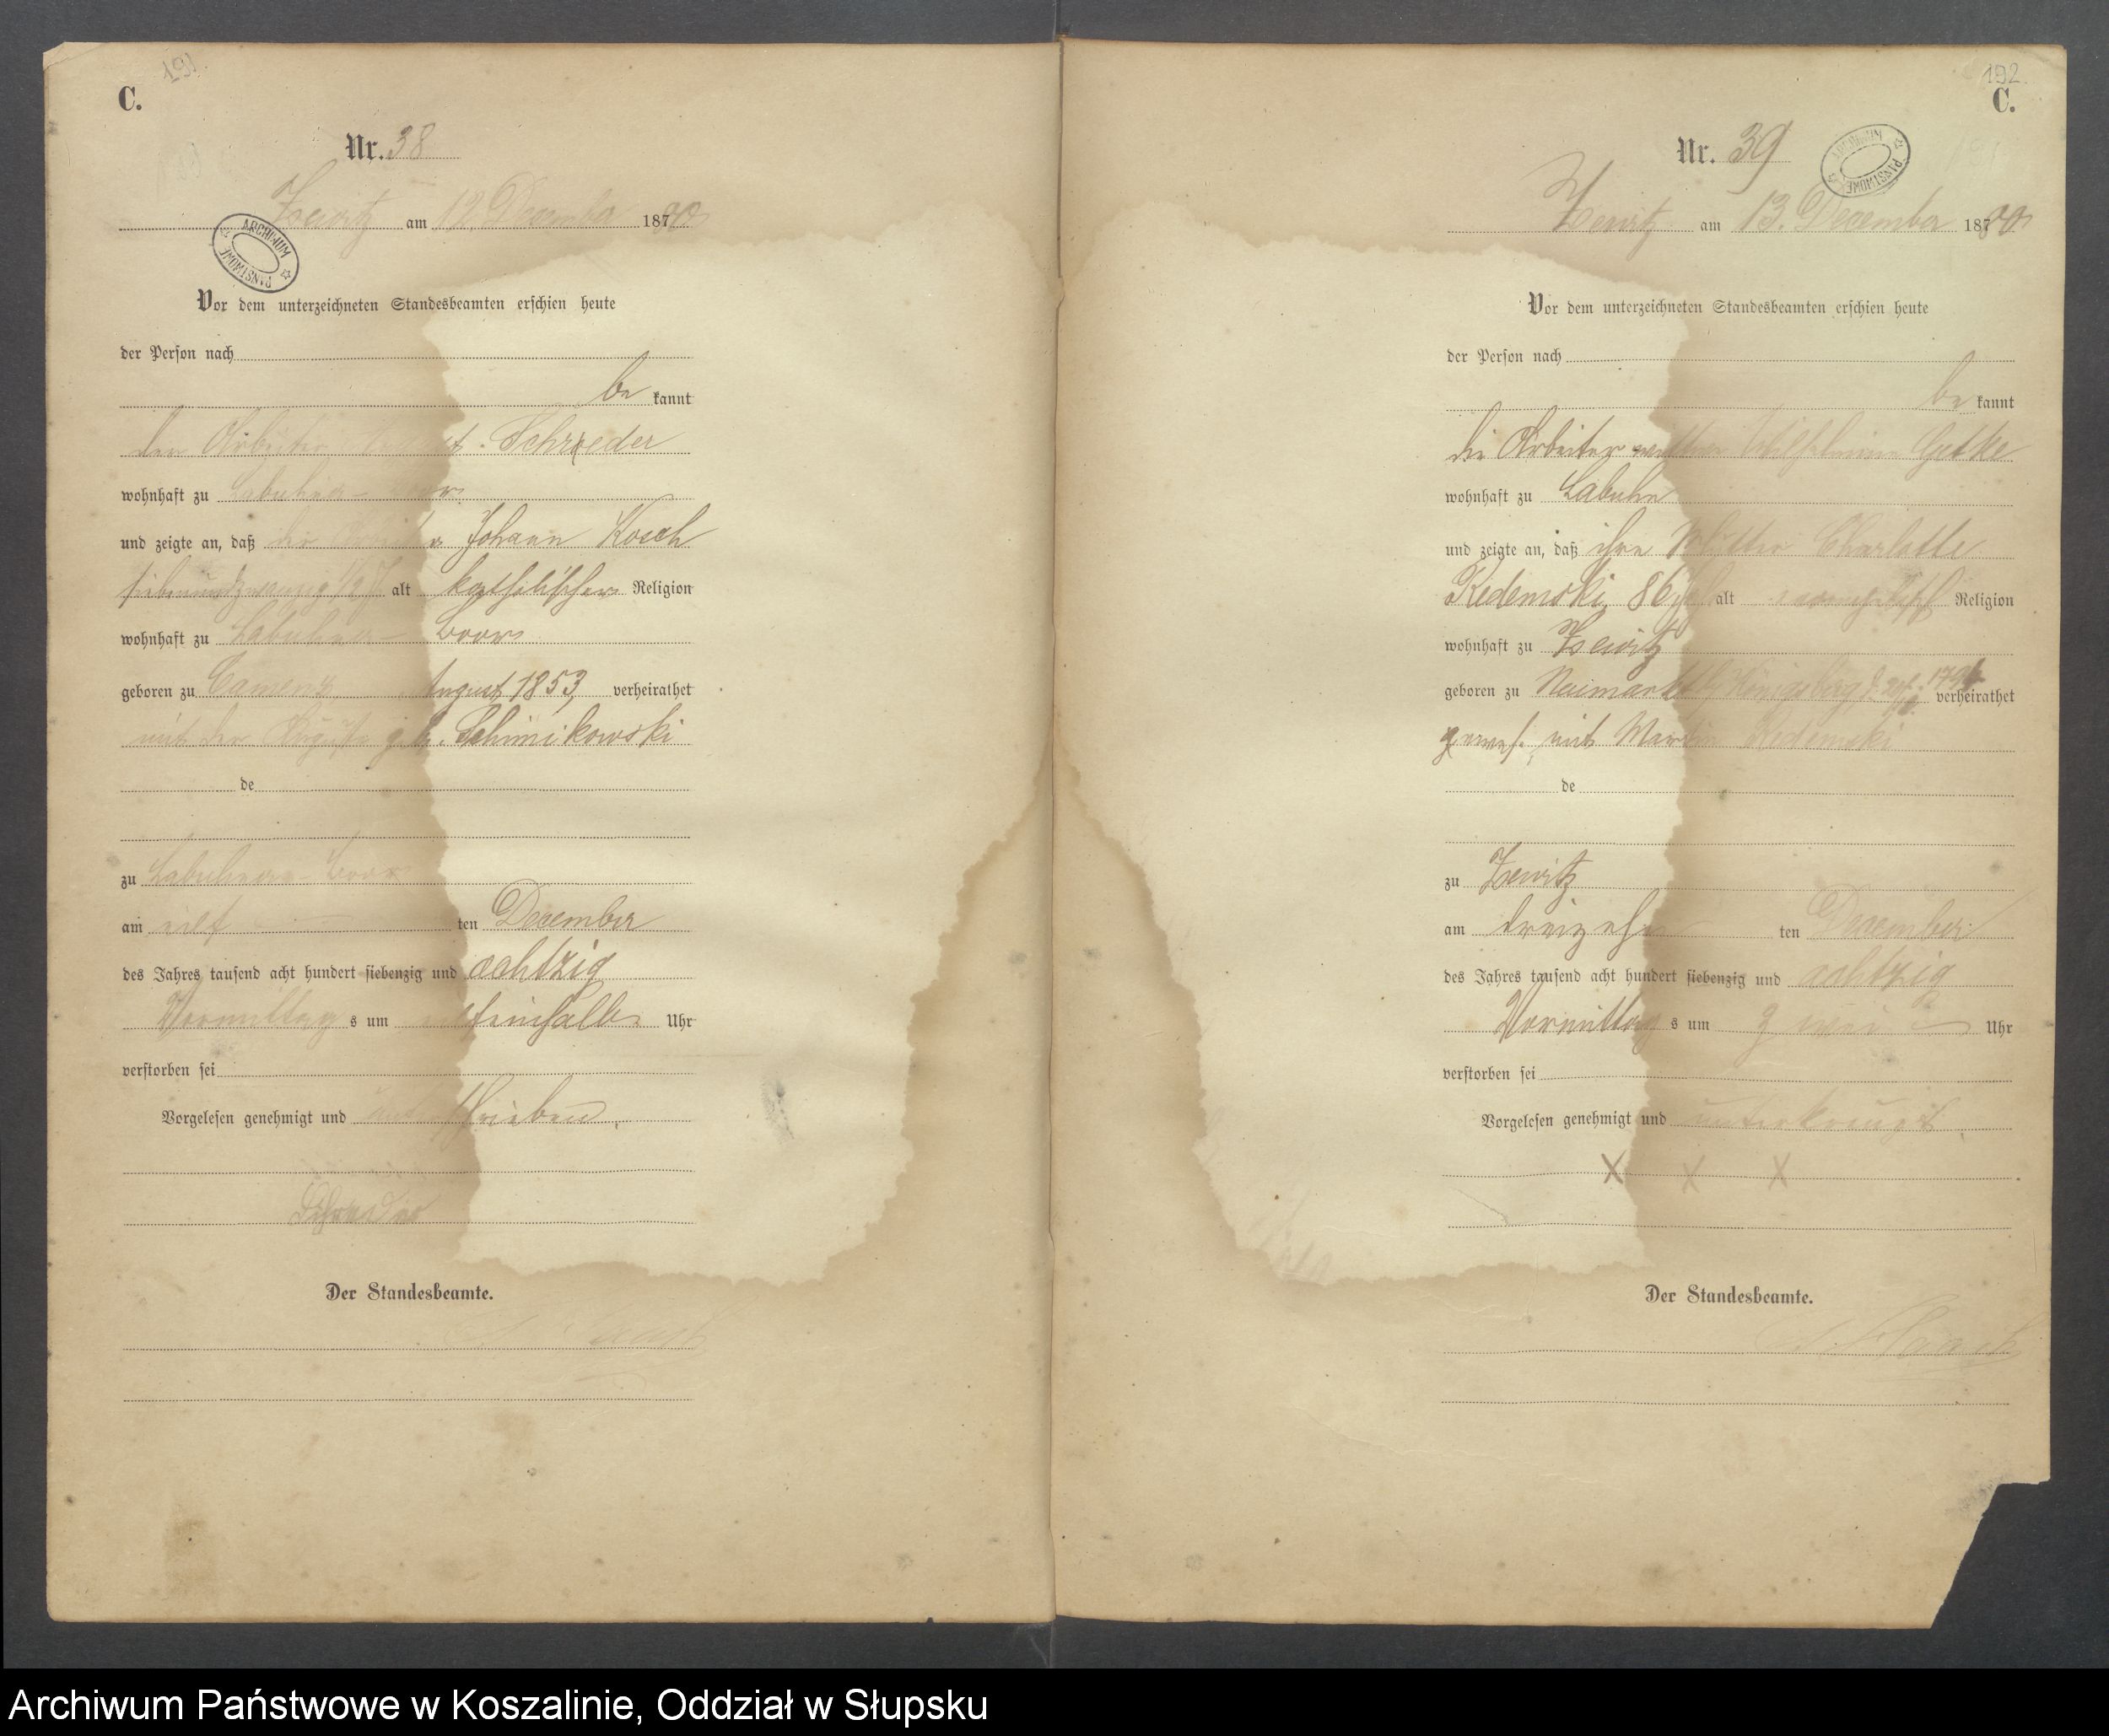 191.
C.
Nr. 38
Zewitz am 12. December 1880
ARCHIWUM PAŃSTWOWE
Vor dem unterzeichneten Standesbeamten erschien heute
der Person nach
be kannt
der Arbeiter August Schroeder
wohnhaft zu Labuhn
und zeigte an, daß der Arbeiter Johann Kosch
siebenundzwanzig 1/2 J alt katholischer Religion
wohnhaft zu
geboren zu August 1853, verheirathet
mit der Auguste geb. Schimikowski
de
zu
am elf ten December
des Jahres tausend acht hundert siebenzig und achtzig
Vormittag s um Uhr
verstorben sei
Vorgelesen genehmigt und unterschrieben,
Schroeder
Der Standesbeamte.
192.
C.
Nr. 39
ARCHIWUM PAŃSTWOWE
Zewitz am 13. December 1880
Vor dem unterzeichneten Standesbeamten erschien heute
der Person nach
be kannt
die Arbeiter Wilhelmine Gatke
wohnhaft zu Labuhn
und zeigte an, daß ihre Mutter Charlotte
Redemski, 86 Jahr alt evangelisch Religion
wohnhaft zu Zewitz
geboren zu Neumarkt verheirathet
gewes. mit Martin Redemski
de
zu Zewitz
am dreizehn ten December
des Jahres tausend acht hundert siebenzig und achtzig
Vormittag s um zwei Uhr
verstorben sei
Vorgelesen genehmigt und unterkreuzt.
X X X
Der Standesbeamte.
Archiwum Państwowe w Koszalinie, Oddział w Słupsku